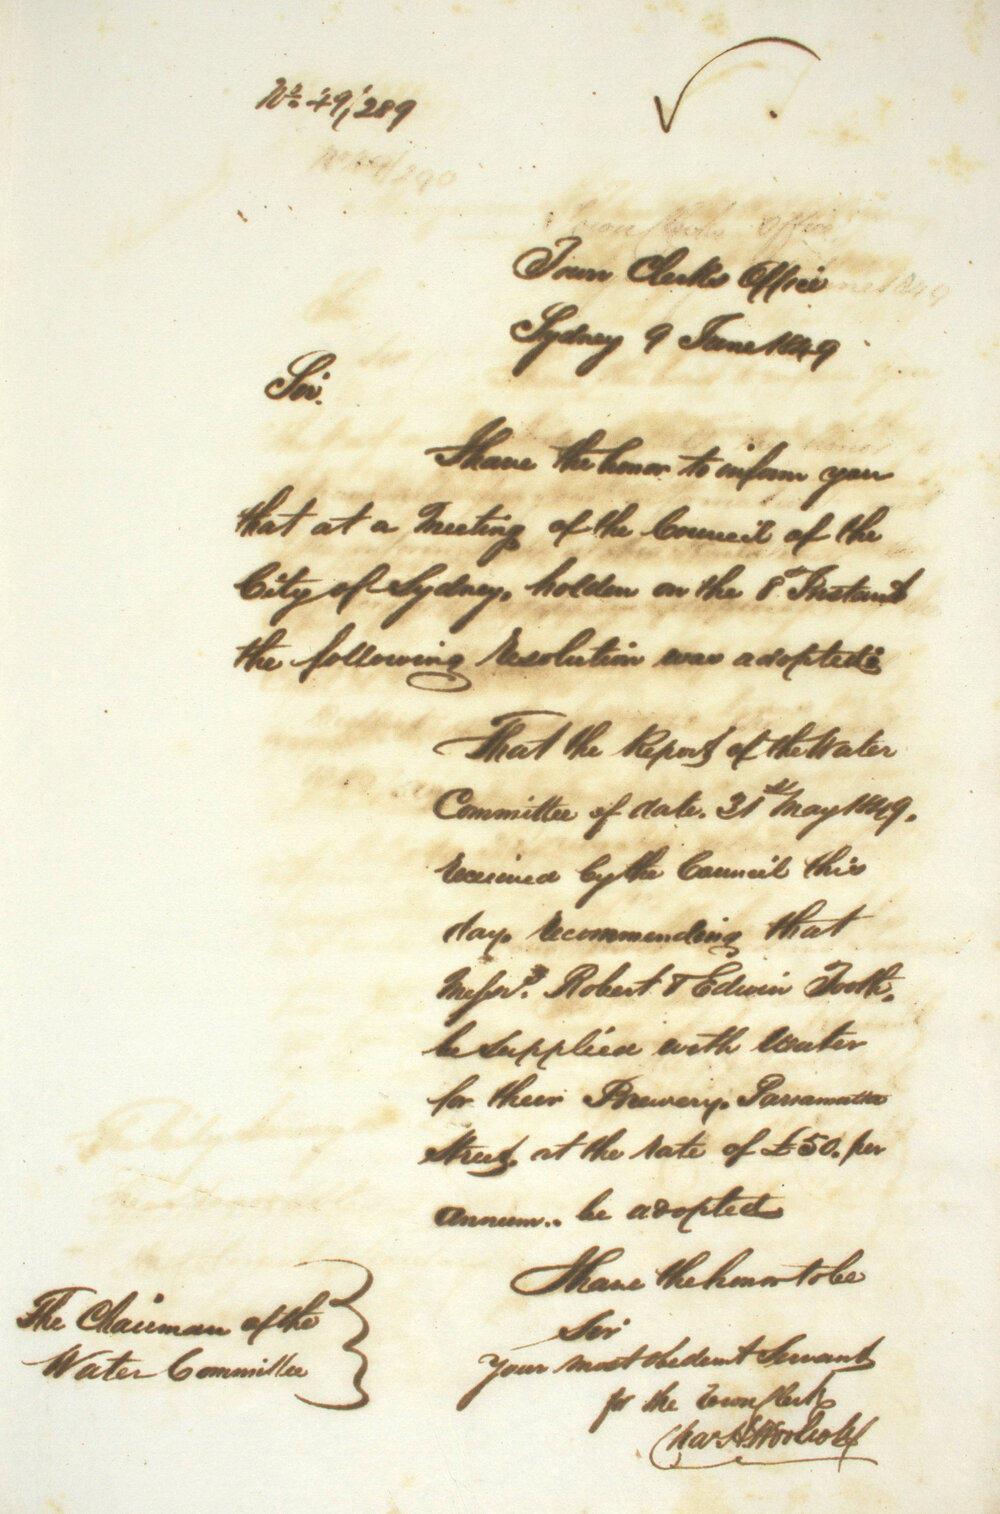 No. 49/289
Town Clerks Office
Sydney 9 June 1849
Sir.
I have the honor to inform you
that at a Meeting of the Council of the
City of Sydney, holden on the 8 Instant
the following Resolution was adopted:
That the Report of the Water
Committee of date. 31st May 1849.
received by the Council this
day. recommending that
Messrs. Robert & Edwin Tooth.
be supplied with Water
for their Brewery. Parramatta
Street. at the rate of £50. per
annum.. be adopted
I have the honor to be
Sir
Your most obedient Servant
for the Town Clerk
Chas H
The Chairman of the
Water Committee